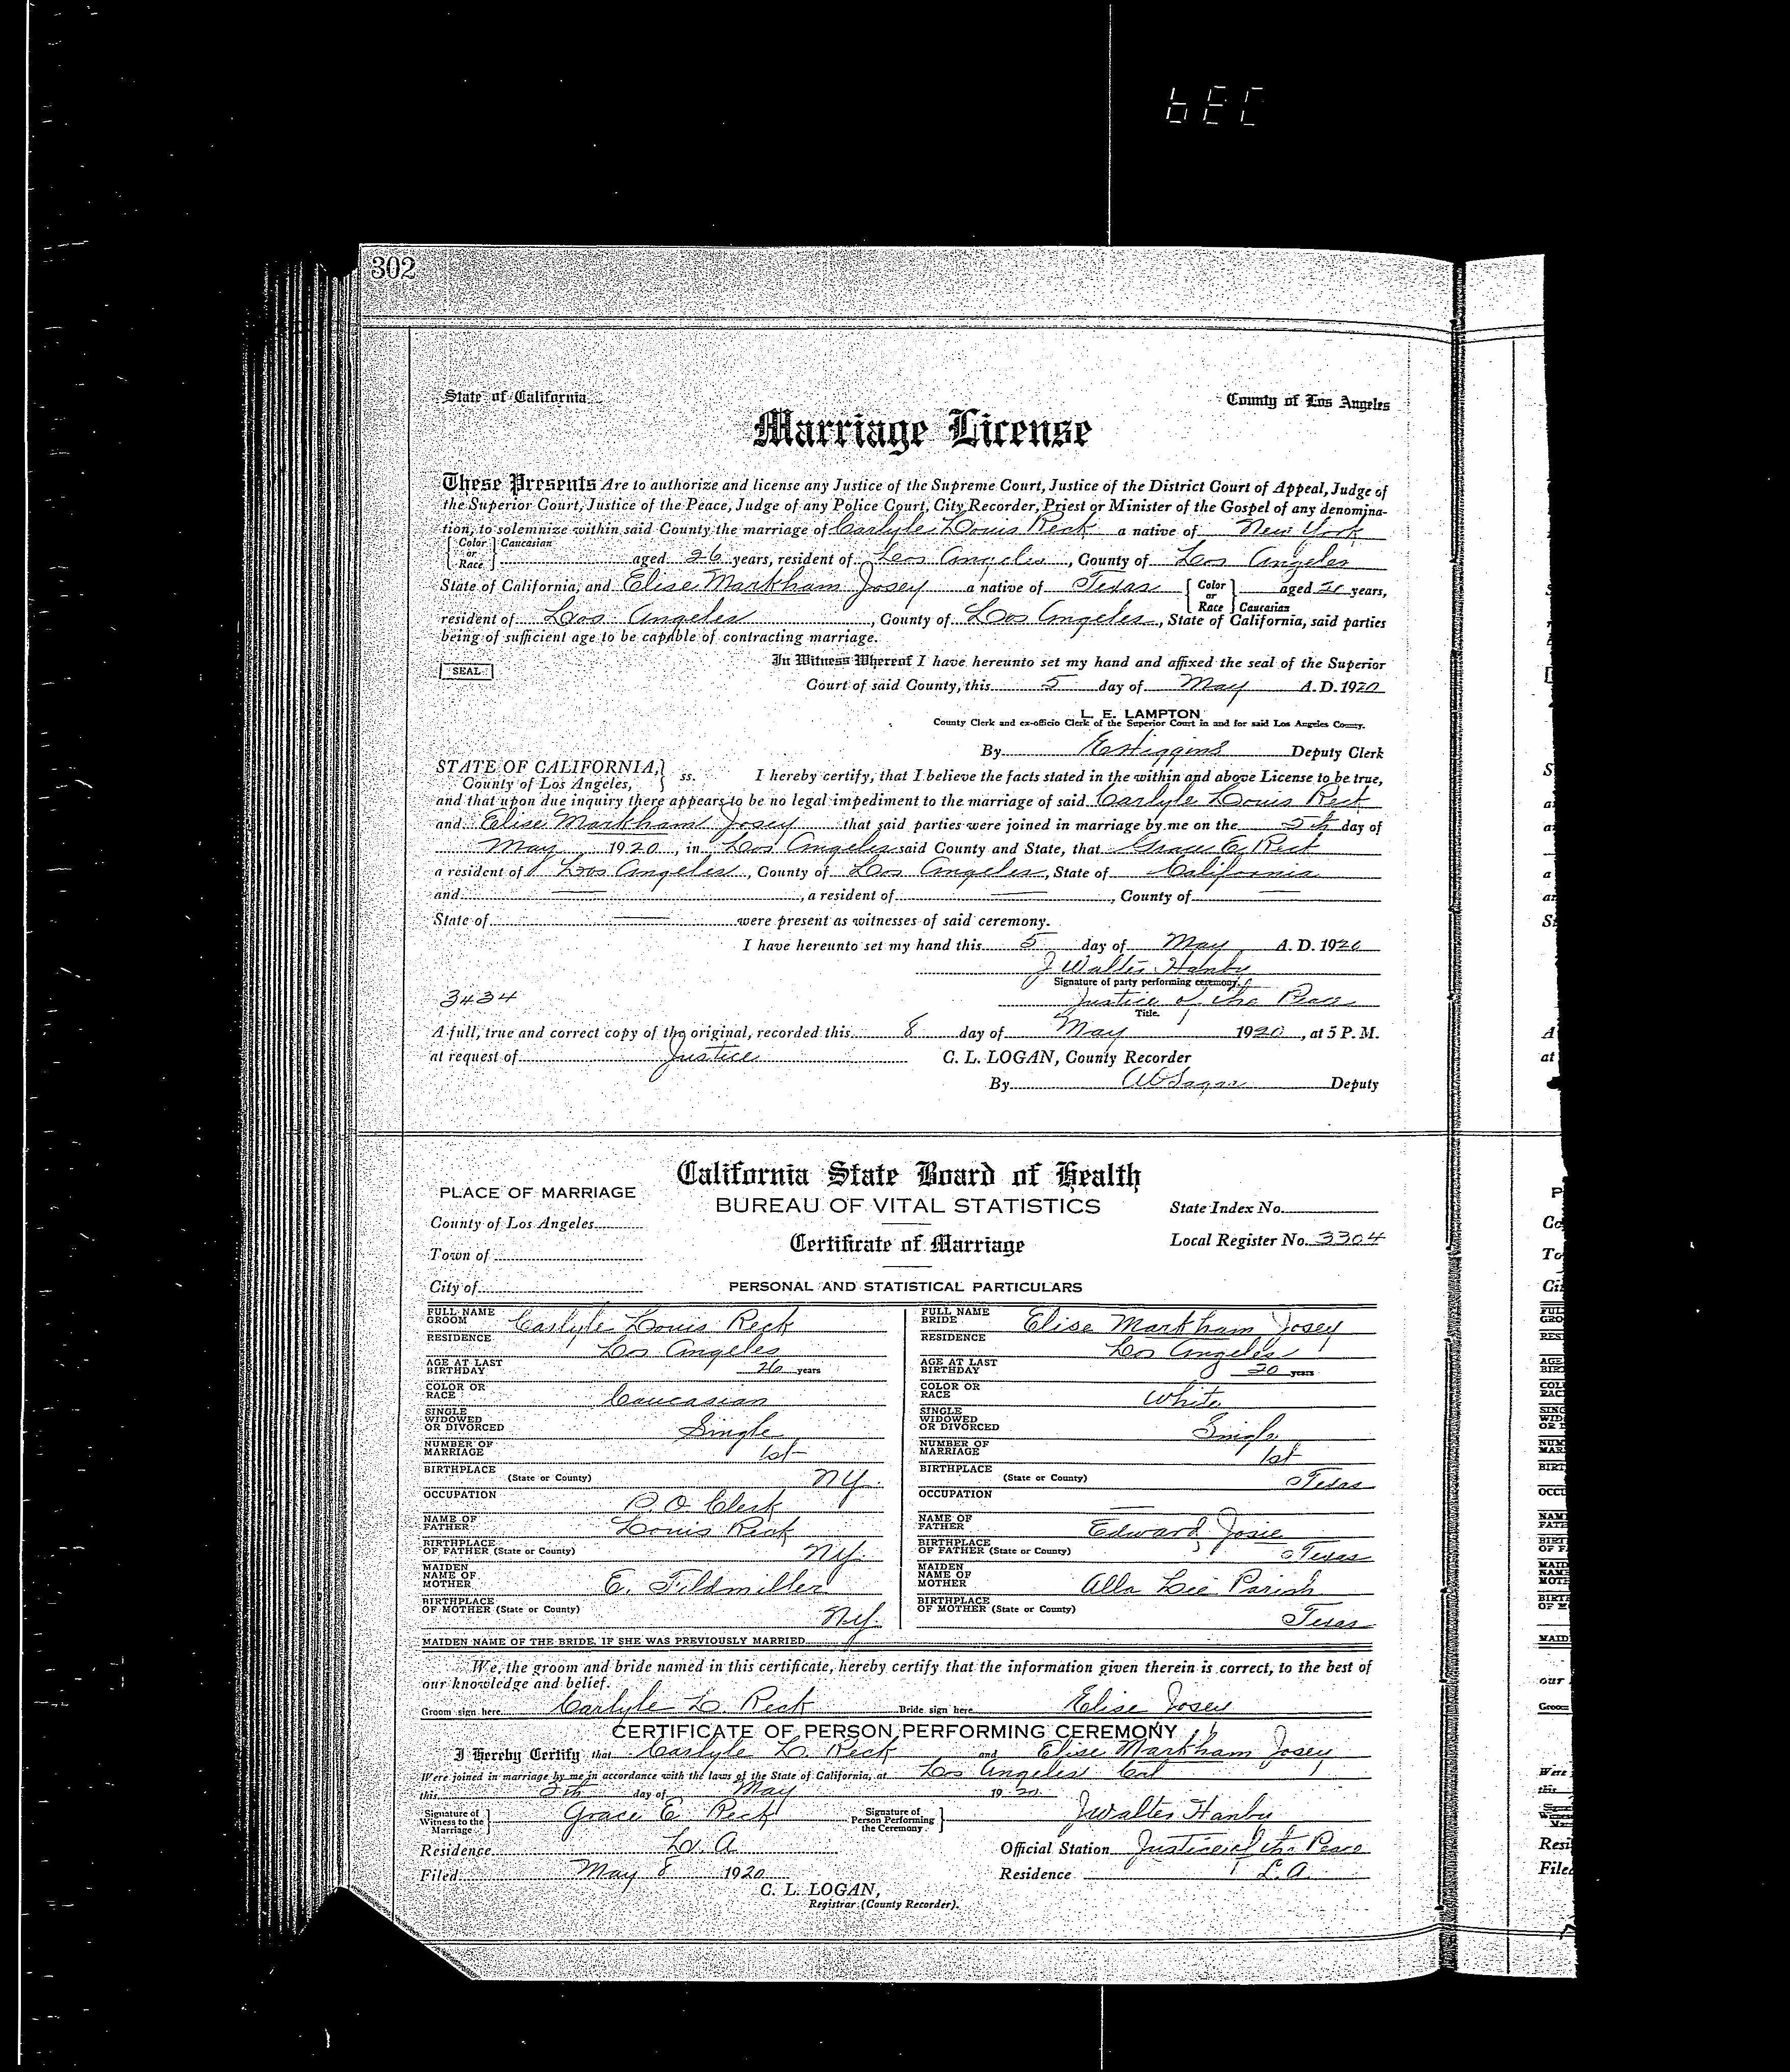 bEC
302
State of California County of Los Angeles
Marriage License
These Presents Are to authorize and license any Justice of the Supreme Court, Justice of the District Court of Appeal, Judge of
the Superior Court, Justice of the Peace, Judge of any Police Court, City Recorder, Priest or Minister of the Gospel of any denomina-
tion, to solemnize within said County the marriage of Carlyle Louis Reck a native of New York
Color or Race Caucasian aged 26 years, resident of Los Angeles, County of Los Angeles
State of California, and Elise Markham Josey a native of Texas Color or Race Caucasian aged years,
resident of Los Angeles, County of Los Angeles, State of California, said parties
being of sufficient age to be capable of contracting marriage.
SEAL
In Witness Whereof I have hereunto set my hand and affixed the seal of the Superior
Court of said County, this 5 day of May A. D. 1920
L. E. LAMPTON
County Clerk and ex-officio Clerk of the Superior Court in and for said Los Angeles County.
By Higgins Deputy Clerk
STATE OF CALIFORNIA,
County of Los Angeles, ss. I hereby certify, that I believe the facts stated in the within and above License to be true,
and that upon due inquiry there appears to be no legal impediment to the marriage of said Carlyle Louis Reck
and Elise Markham Josey that said parties were joined in marriage by me on the 5th day of
May 1920, in Los Angeles said County and State, that Grace E. Reck
a resident of Los Angeles, County of Los Angeles, State of California
and, a resident of, County of
State of were present as witnesses of said ceremony.
I have hereunto set my hand this 5 day of May A. D. 1920
J Walter Hanby
Signature of party performing ceremony.
3434 Justice of the Peace
Title.
A full, true and correct copy of the original, recorded this 8 day of May 1920, at 5 P. M.
at request of Justice C. L. LOGAN, County Recorder
By Deputy
California State Board of Health
PLACE OF MARRIAGE
BUREAU OF VITAL STATISTICS State Index No.
County of Los Angeles
Certificate of Marriage Local Register No. 3304
Town of
City of PERSONAL AND STATISTICAL PARTICULARS
FULL NAME GROOM Carlyle Louis Reck FULL NAME BRIDE Elise Markham Josey
RESIDENCE Los Angeles RESIDENCE Los Angeles
AGE AT LAST BIRTHDAY 26 years AGE AT LAST BIRTHDAY 20 years
COLOR OR RACE Caucasian COLOR OR RACE White
SINGLE WIDOWED OR DIVORCED Single SINGLE WIDOWED OR DIVORCED Single
NUMBER OF MARRIAGE 1st NUMBER OF MARRIAGE 1st
BIRTHPLACE (State or County) NY. BIRTHPLACE (State or County) Texas
OCCUPATION P. O. Clerk OCCUPATION
NAME OF FATHER Louis Reck NAME OF FATHER Edward Josie
BIRTHPLACE OF FATHER (State or County) NY. BIRTHPLACE OF FATHER (State or County) Texas
MAIDEN NAME OF MOTHER E. Fildmiller MAIDEN NAME OF MOTHER Alla Lee Parish
BIRTHPLACE OF MOTHER (State or County) NY. BIRTHPLACE OF MOTHER (State or County) Texas
MAIDEN NAME OF THE BRIDE, IF SHE WAS PREVIOUSLY MARRIED
We, the groom and bride named in this certificate, hereby certify that the information given therein is correct, to the best of
our knowledge and belief.
Groom sign here Carlyle L. Reck Bride sign here Elise Josey
CERTIFICATE OF PERSON PERFORMING CEREMONY
I Hereby Certify that Carlyle L. Reck and Elise Markham Josey
Were joined in marriage by me in accordance with the laws of the State of California, at Los Angeles Cal
this 5th day of May 1920
Signature of Witness to the Marriage Grace E. Reck Signature of Person Performing the Ceremony J Walter Hanby
Residence L. A. Official Station Justice of the Peace
Filed May 8 1920 Residence L. A.
C. L. LOGAN,
Registrar (County Recorder).